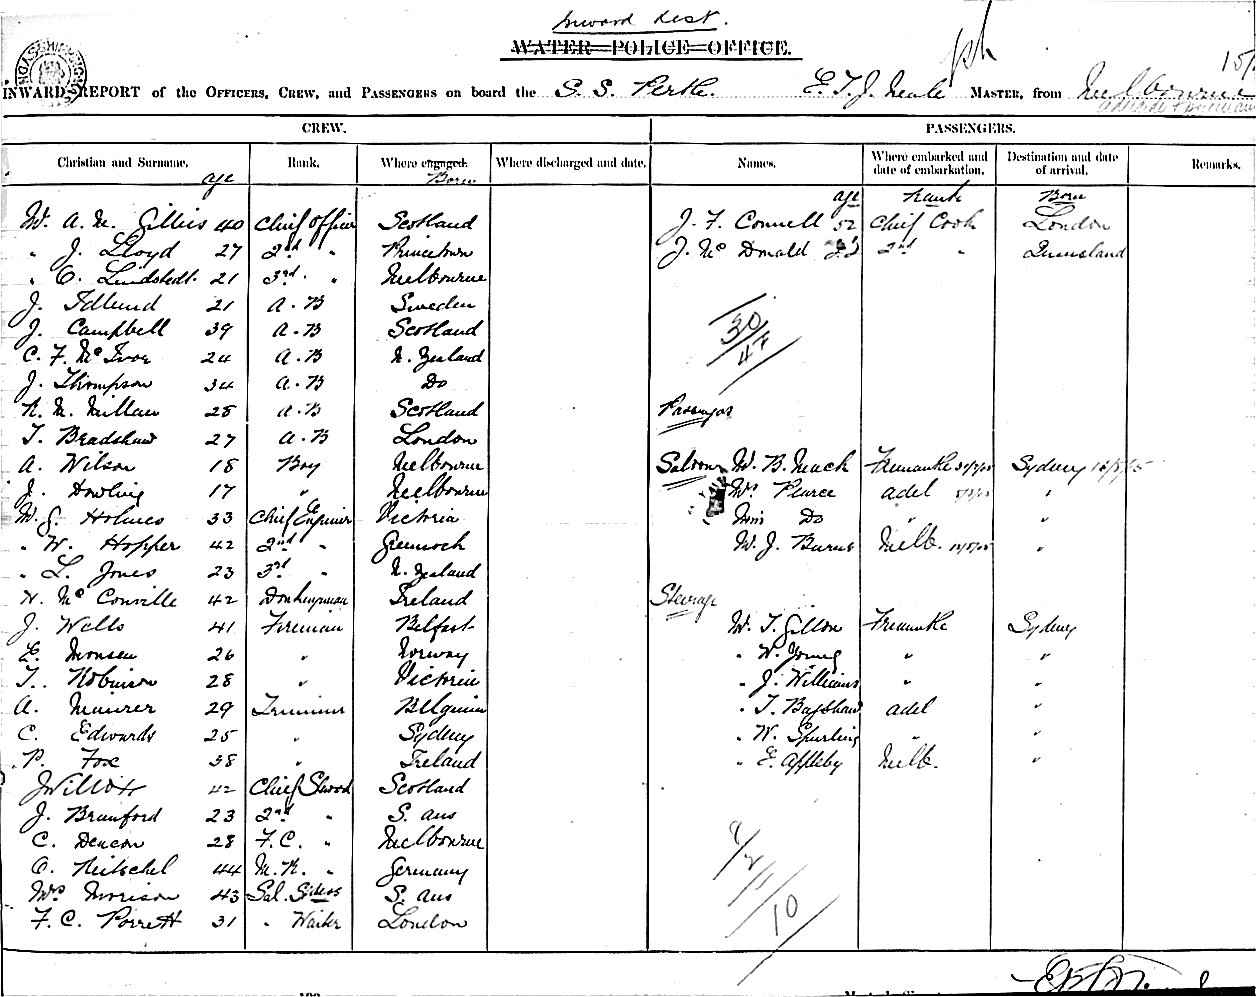 Inward List.
WATER POLICE OFFICE.
INWARD REPORT of the OFFICERS, CREW, and PASSENGERS on board the S. S. Perth. E. T. J. Neale MASTER, from Melbourne
CREW. PASSENGERS.
Christian and Surname. Rank. Where engaged. Where discharged and date. Names. Where embarked and date of embarkation. Destination and date of arrival. Remarks.
age Born age Rank Born
W. A. M. Gillies 40 Chief Officer Scotland J. F. Connell 52 Chief Cook London
" J. Lloyd 27 2nd " Princetown J. Mc Donald 2nd " Queensland
" O. Lindstedt. 21 3rd " Melbourne
J. Idlund 21 A. B Sweden
J. Campbell 39 A. B Scotland
C. F. Mc Ivor 24 A. B N. Zealand
J. Thompson 34 A. B Do
R. M. Millan 28 A. B Scotland Passengers
T. Bradshaw 27 A. B London
A. Wilson 18 Boy Melbourne Saloon W. B. Mack Fremantle Sydney
J. Dowling 17 " Melbourne Mrs Pearce adel "
W. G. Holmes 33 Chief Engineer Victoria Miss Do " "
" W. Hopper 42 2nd " Greenock W. J. Burns Melb. "
" L. Jones 23 3rd " N. Zealand
H. Mc Conville 42 Donkeyman Ireland Steerage
J. Wells 41 Fireman Belfast W. T. Gillon Fremantle Sydney
E. Monsen 26 " Norway " W. Young " "
T. Robinson 28 " Victoria " J. Williams " "
A. Maurer 29 Trimmer Belgium " T. Bagshaw adel "
C. Edwards 25 " Sydney " W. Spurling "
P. Fox 38 " Ireland " E. Appleby Melb. "
J Willox 42 Chief Steward Scotland
J. Branford 23 2nd " S. aus
C. Deacon 28 F. C. " Melbourne
O. Heitschel 44 M. R. " Germany
Mrs Morrison 43 Sal. Stdess S. aus
F. C. Porrett 31 " Waiter London